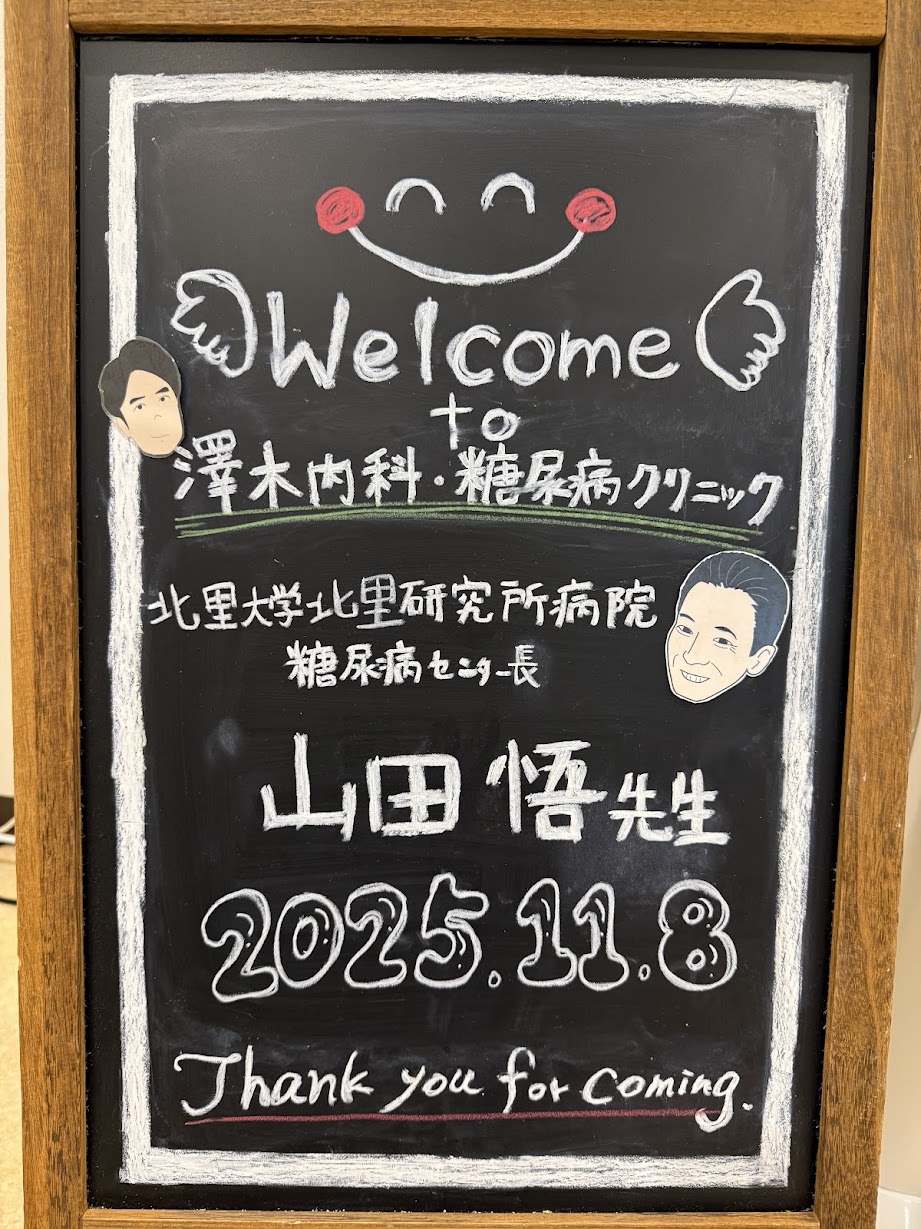 Welcome
to
澤木内科・糖尿病クリニック
北里大学北里研究所病院
糖尿病センター長
山田 悟 先生
2025.11.8
Thank you for coming.